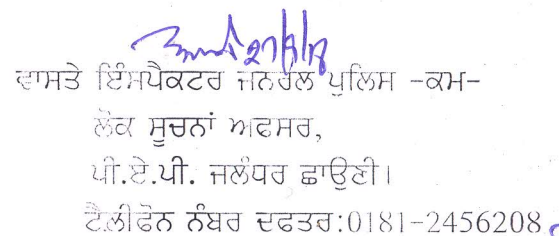 27/8/18
ਵਾਸਤੇ ਇੰਸਪੈਕਟਰ ਜਨਰਲ ਪੁਲਿਸ -ਕਮ-
ਲੋਕ ਸੂਚਨਾਂ ਅਫਸਰ,
ਪੀ.ਏ.ਪੀ. ਜਲੰਧਰ ਛਾਉਣੀ।
ਟੈਲੀਫੋਨ ਨੰਬਰ ਦਫਤਰ:0181-2456208